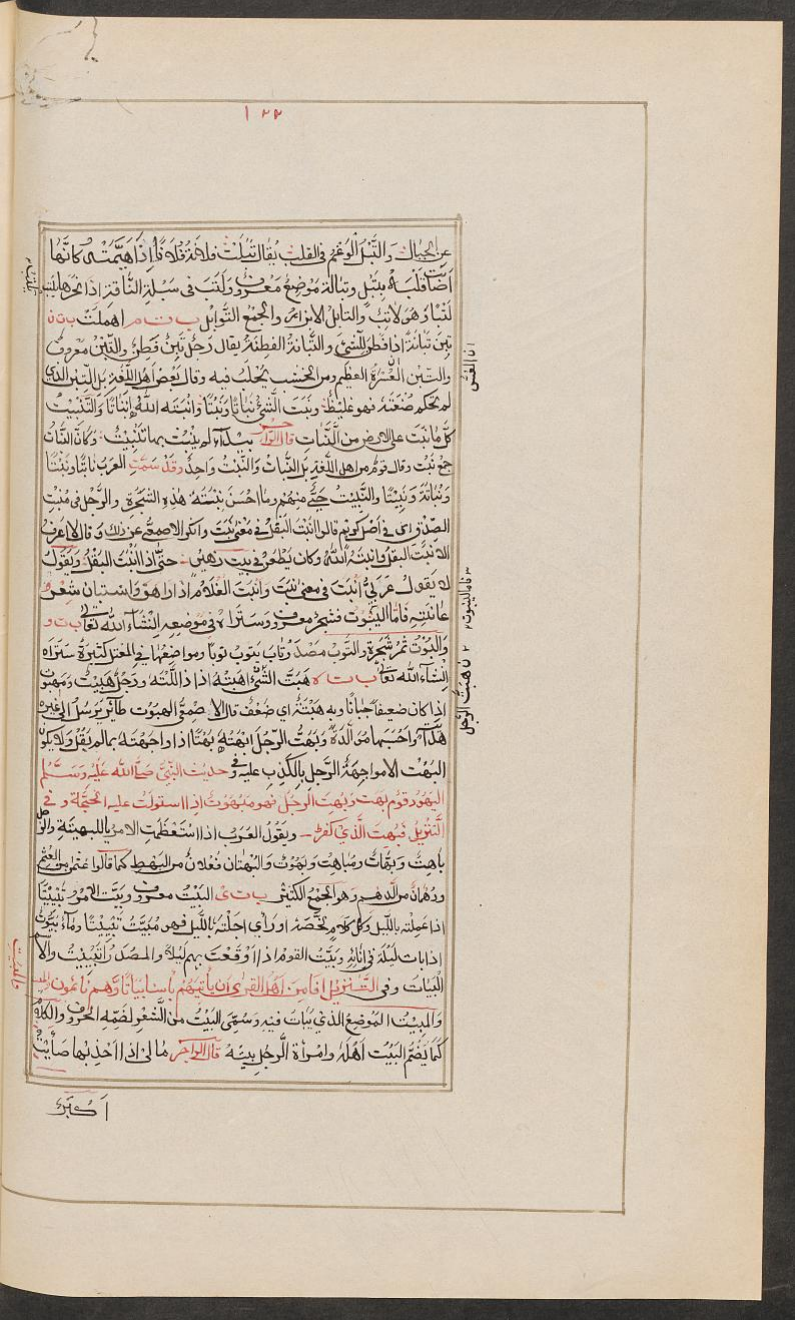 ١٢٢
عن الجبال والتَّبْل الوَغم في القلب يُقال تبلت فلانة فلانًا اذا هيّمته كانّها
اصابت قلبه بتبل وتبالة موضع معروف ولتب في سبلة الناقة اذا نحرها يلتب
لتبًا وهو لاتب والتابل الابزار والجمع التوابل ب ت م اهملت ب ت ن
تبن تبانة اذا فطن للشئ والتبانة الفطنة يقال رجل تبن فطن والتبن معروف
والتبن العس العظيم من الخشب يحلب فيه وقال بعض اهل اللغة بل التبن الذي
لم تحكم صنعته فهو غليظ ونبت الشئ نباتًا ونبتًا وانبته الله إنباتًا والتنبيت
كل ما نبت على الارض من النبات قال الراجز بيداء لم ينبت بها تنبيت وكان النبات
جمع نبت وقال قوم من اهل اللغة بل النبات والنبت واحد وقد سمت العرب نابتًا ونبتًا
ونباتة ونبيتًا والنبيت حيّ منهم وما احسن نبتة هذه الشجرة والرجل في منبت
الصدق اى في اصل كريم قالوا انبت البقل في معنى نبت وانكر الاصمعى عن ذلك وقال لا اعرف
الا نبت البقل وانبته الله وكان يطعن في بيت زهير حتى اذا انبت البقل ويقول
لا يقول عربيّ انبت في معنى نبت وانبت الغلام اذا راهق واستبان شعر
عانته فاما الينبوت فشجر معروف وستراه في موضعه انشاء الله تعالى ب ت و
والبوت ثمر شجرة والتوب مصدر تاب يتوب توبًا ومواضعها في المعتل كثيرة ستراه
انشاء الله تعالى ب ت ه هبت الشئ اهبته اذا ذللته ورجل هبيت ومهبوت
اذا كان ضعيفًا جبانًا وبه هبتة اى ضعف قال الاصمعى الهبوت طائر يرسل الى غيره
هدايةً واحسبها مولدة وبهت الرجل ابهته بهتًا اذا واجهته بما لم يقل ولا يكون
البهت الا مواجهة الرجل بالكذب عليه وفي حديث النبي صلى الله عليه وسلم
اليهود قوم بهت وبهت الرجل فهو مبهوت اذا استولت عليه الحجة وفي
التنزيل فبهت الذي كفر ويقول العرب اذا استعظمت الامر ياللبهيتة والرجل
باهت وبهّات ومباهت وبهوت والبهتان فعلان من البهت كما قالوا
من الدهم وهو الجمع الكثير ب ت ى البيت معروف وبيّت الامر تبييتًا
اذا عملته بالليل وكل كلام لخّصته او رأي اجلته بالليل فهو مبيت تبييتًا وماء بيّوت
اذا بات ليلة في انائه وبيّت القوم اذا اوقعت بهم ليلًا والمصدر التبييت والاسم
البيات وفي التنزيل افامن اهل القرى ان يأتيهم بأسنا بياتًا وهم نائمون
والمبيت الموضع الذي يبات فيه وسمّى البيت من الشعر لضمه الحروف والكلام
كما يضمّ البيت اهله وامرأة الرجل بيته قال الراجز مالى اذا اخذتها صأيت
اكبر